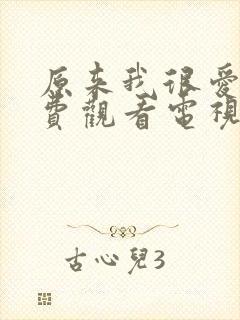 原来我很愛
費觀看電視
古心兒3